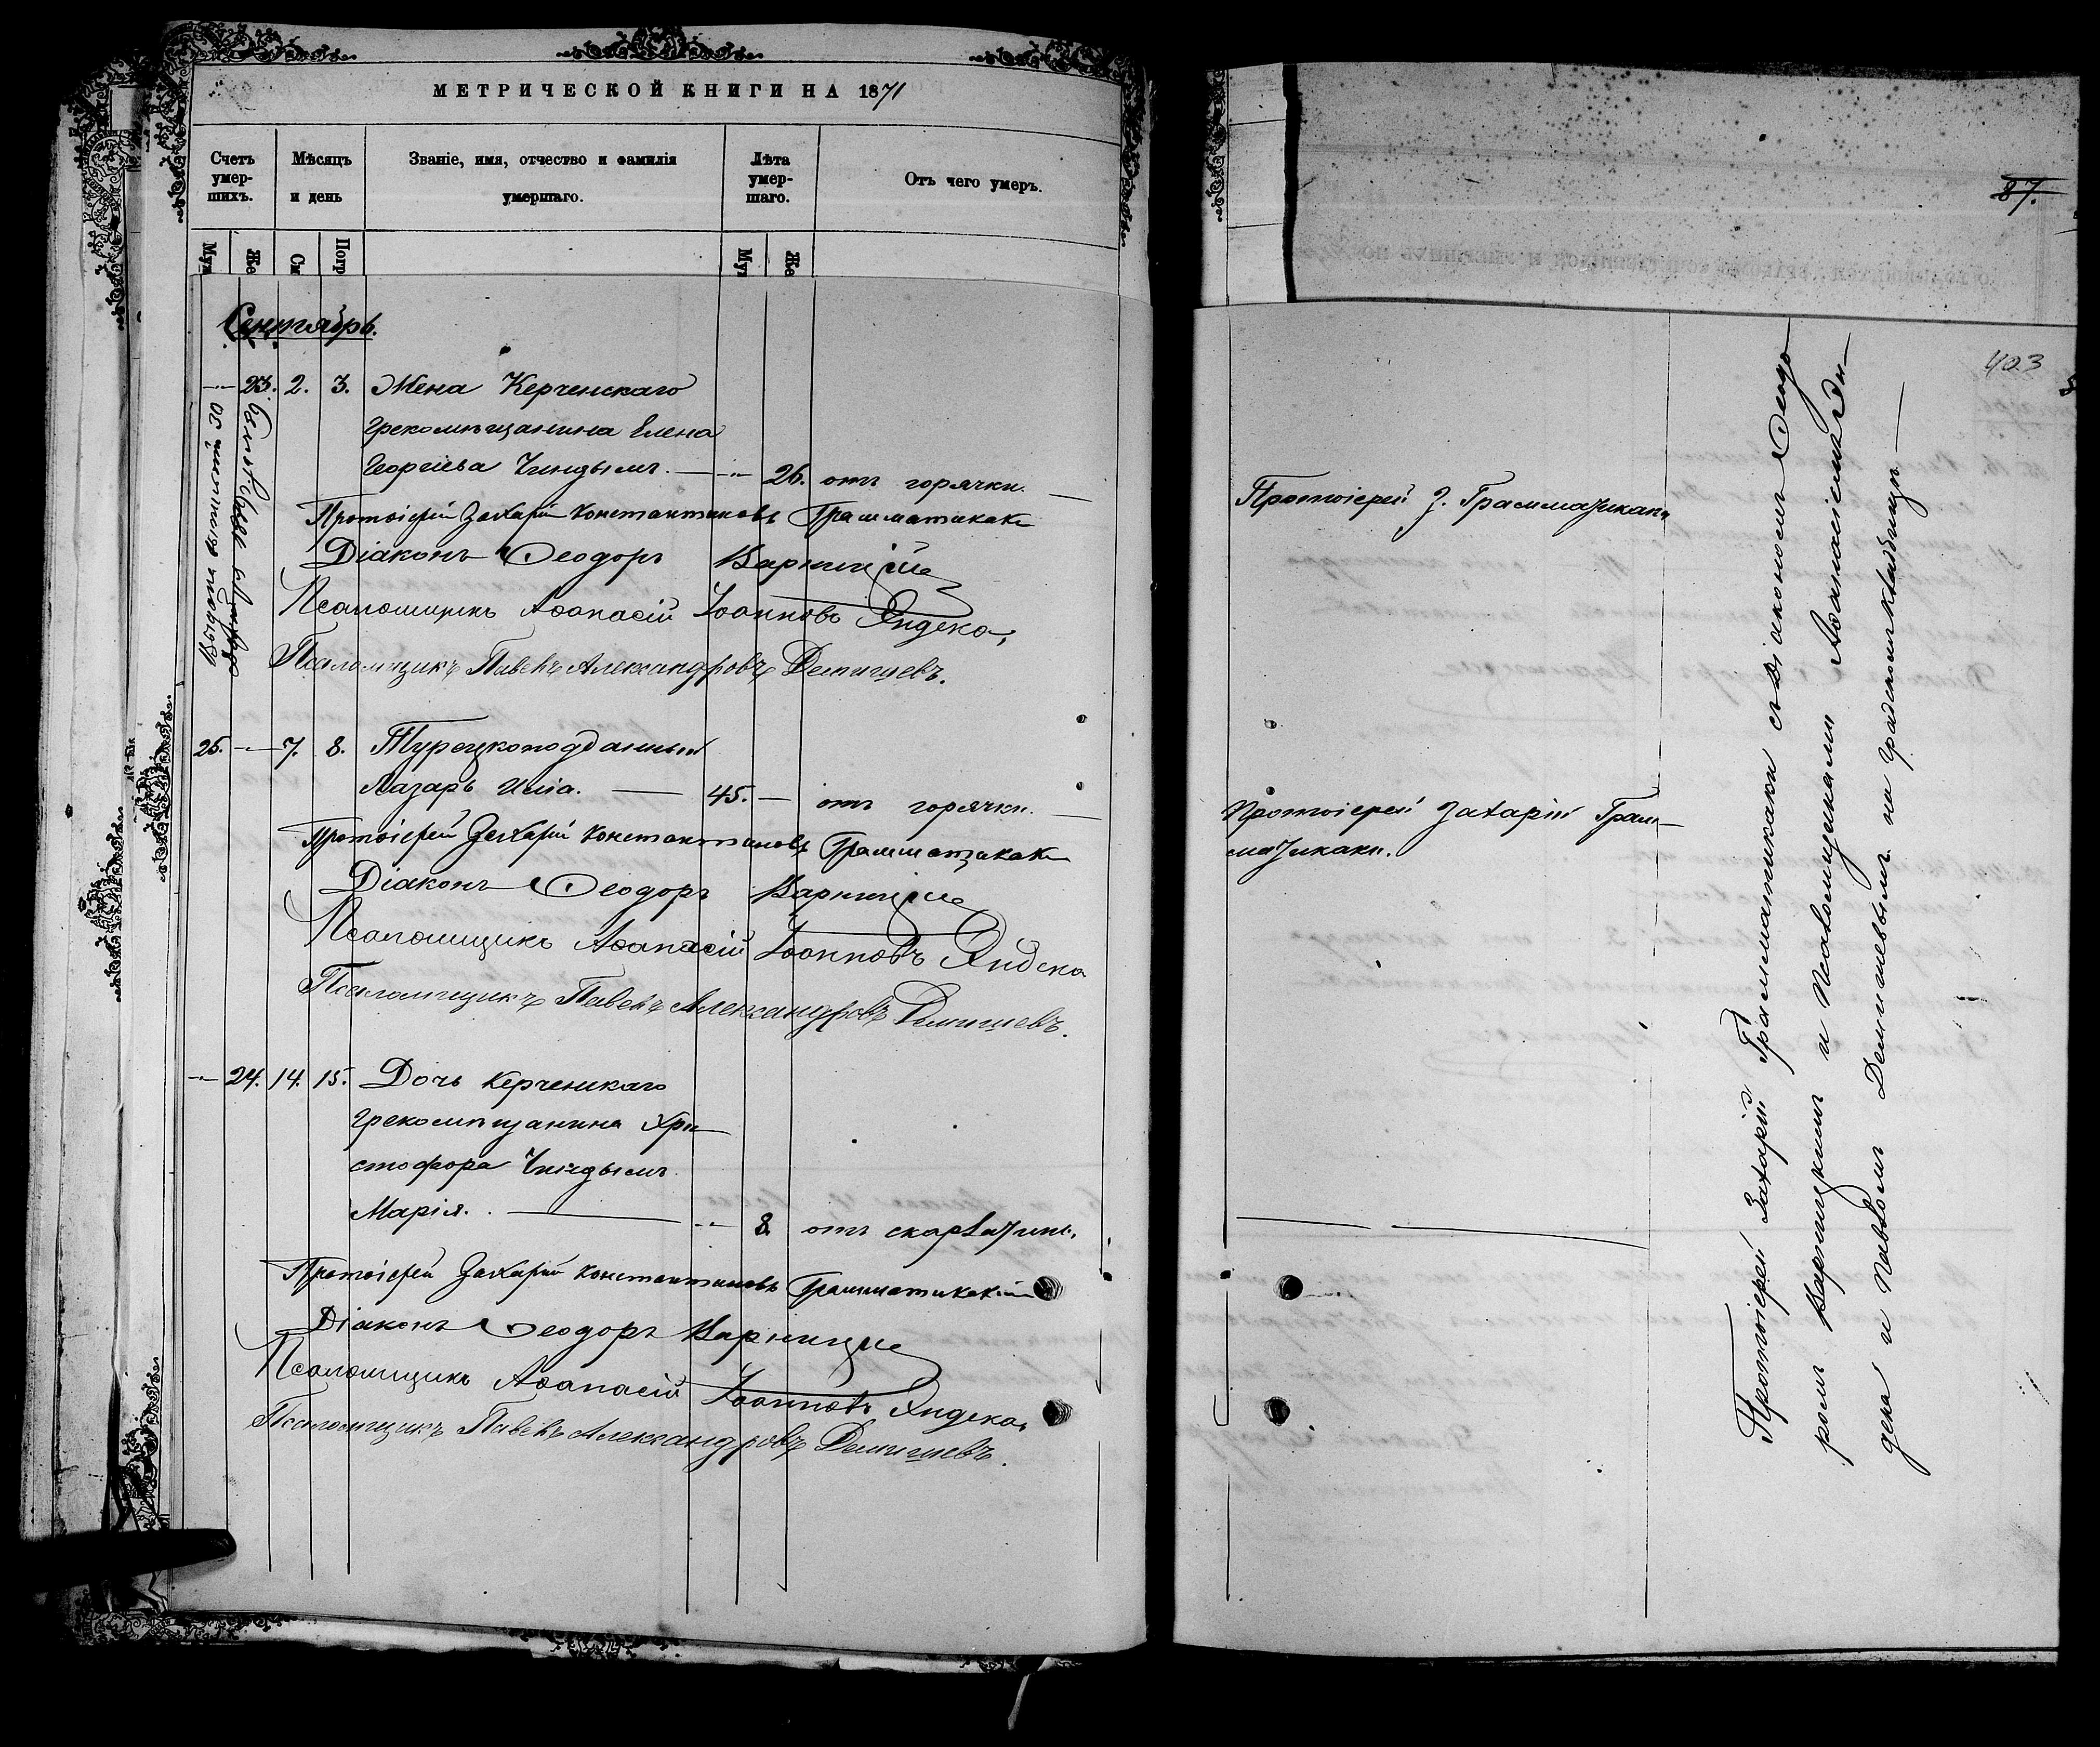 МЕТРИЧЕСКОЙ КНИГИ НА 1871
Счетъ умер-шихъ.
Мѣсяцъ и день
Званіе, имя, отчество и фамилія умершаго.
Лѣта умер-шаго.
Отъ чего умеръ.
Муж
Же
См
Погр
Му
Же
Сентябрь.
23. 2. 3. Жена Керченскаго
грекомѣщанина Елена
Георгіева Чиндымъ. — 26. отъ горячки. —
Протоіерей Захарій Константиновъ Грамматикаки
Діаконъ Ѳеодоръ Варницкій
Псаломщикъ Аѳанасій Іоанновъ Яндека,
Псаломщикъ Павелъ Александровъ Демишевъ.
25. — 7. 8. Турецкоподданный
Лазарь Иліа. — 45. — отъ горячки. —
Протоіерей Захарій Константиновъ Грамматикаки
Діаконъ Ѳеодоръ Варницкій
Псаломщикъ Аѳанасій Іоанновъ Яндека
Псаломщикъ Павелъ Александровъ Демишевъ.
24. 14. 15. Дочь Керченскаго
грекомѣщанина Хри-
стофора Чиндымъ
Марія. — 8. отъ скарлатины.
Протоіерей Захарій Константиновъ Грамматикаки
Діаконъ Ѳеодоръ Варницкій
Псаломщикъ Аѳанасій Іоанновъ Яндека,
Псаломщикъ Павелъ Александровъ Демишевъ.
87.
403
Протоіерей З. Грамматикаки
Протоіерей Захарій Грам-
матикаки.
Протоіерей Захарій Грамматикаки съ діакономъ Ѳеодо-
ромъ Варницкимъ и Псаломщиками Аѳанасіемъ Ян-
дека и Павломъ Демишевымъ на градскомъ кладбищѣ —